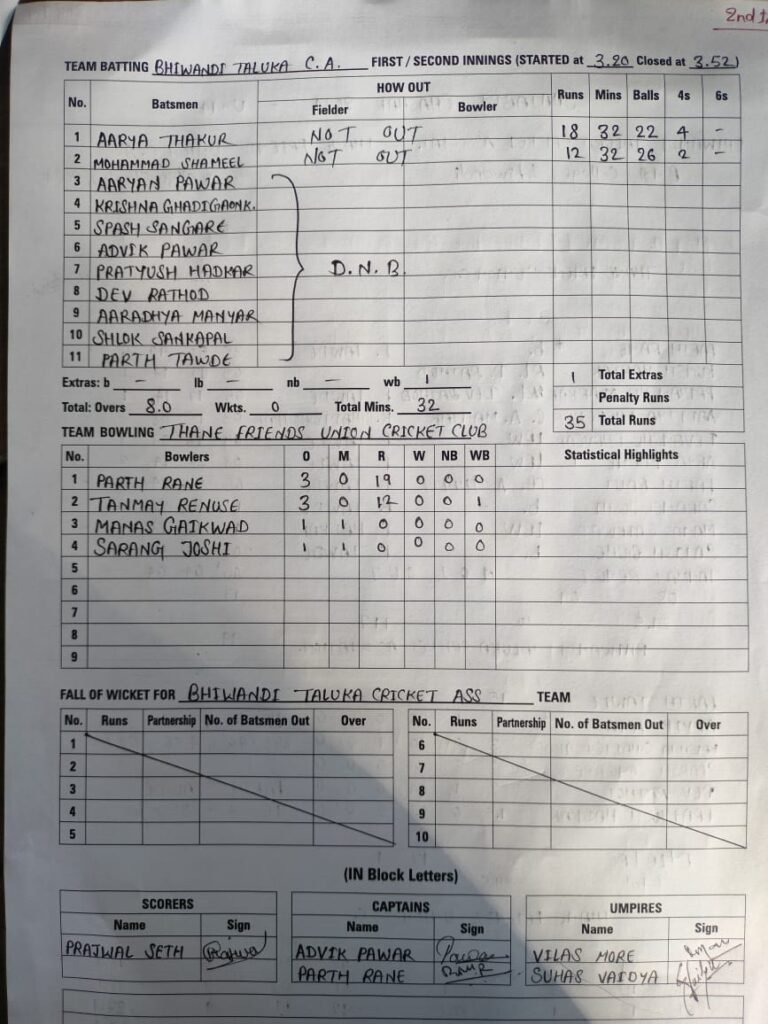 2nd
TEAM BATTING BHIWANDI TALUKA C.A. FIRST / SECOND INNINGS (STARTED at 3.20 Closed at 3.52)
No. Batsmen HOW OUT Fielder Bowler Runs Mins Balls 4s 6s
1 AARYA THAKUR NOT OUT 18 32 22 4 -
2 MOHAMMAD SHAMEEL NOT OUT 12 32 26 2 -
3 AARYAN PAWAR
4 KRISHNA GHADIGAONK.
5 SPASH SANGARE
6 ADVIK PAWAR
7 PRATYUSH HADKAR D.N.B.
8 DEV RATHOD
9 AARADHYA MANYAR
10 SHLOK SANKAPAL
11 PARTH TAWDE
Extras: b - lb - nb - wb 1 1 Total Extras
Penalty Runs
Total: Overs 8.0 Wkts. 0 Total Mins. 32 35 Total Runs
TEAM BOWLING THANE FRIENDS UNION CRICKET CLUB
No. Bowlers O M R W NB WB Statistical Highlights
1 PARTH RANE 3 0 19 0 0 0
2 TANMAY RENUSE 3 0 12 0 0 1
3 MANAS GAIKWAD 1 1 0 0 0 0
4 SARANG JOSHI 1 1 0 0 0 0
5
6
7
8
9
FALL OF WICKET FOR BHIWANDI TALUKA CRICKET ASS TEAM
No. Runs Partnership No. of Batsmen Out Over No. Runs Partnership No. of Batsmen Out Over
1 6
2 7
3 8
4 9
5 10
(IN Block Letters)
SCORERS CAPTAINS UMPIRES
Name Sign Name Sign Name Sign
PRAJWAL SETH Prajwal ADVIK PAWAR VILAS MORE
PARTH RANE SUHAS VAIDYA